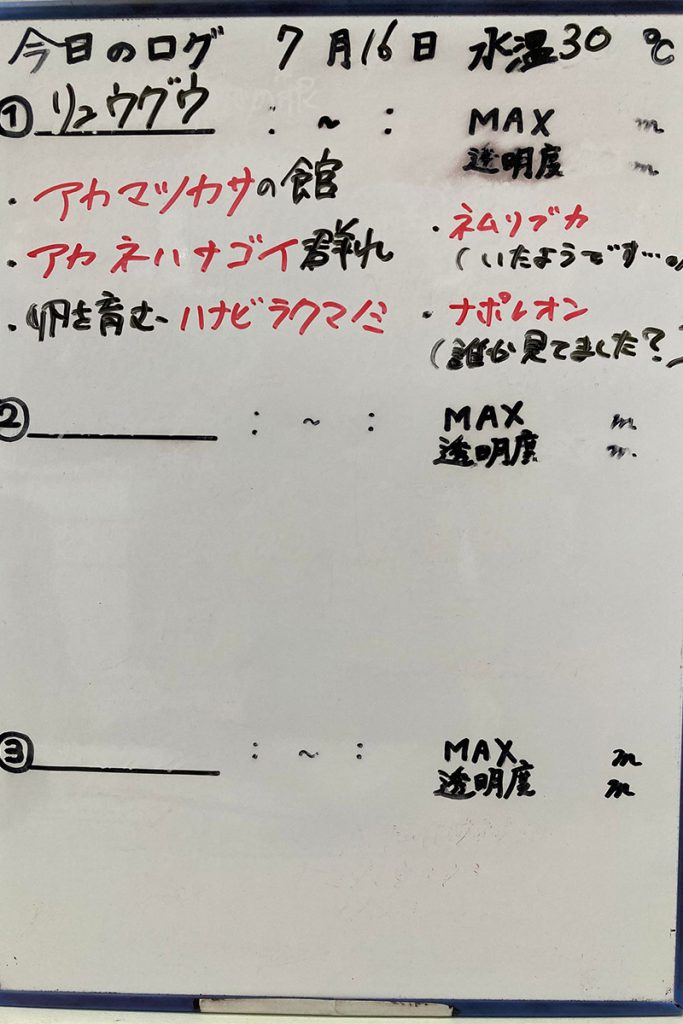 今日のログ 7月16日 水温30℃
① リュウグウ : ~ : MAX m
透明度 m
・アカマツカサの館
・アカネハナゴイ群れ
・卵を育む ハナビラクマノミ
・ネムリブカ
(いたようです…。
・ナポレオン
(誰か見てました?)
② : ~ : MAX m
透明度 m.
③ : ~ : MAX m
透明度 m